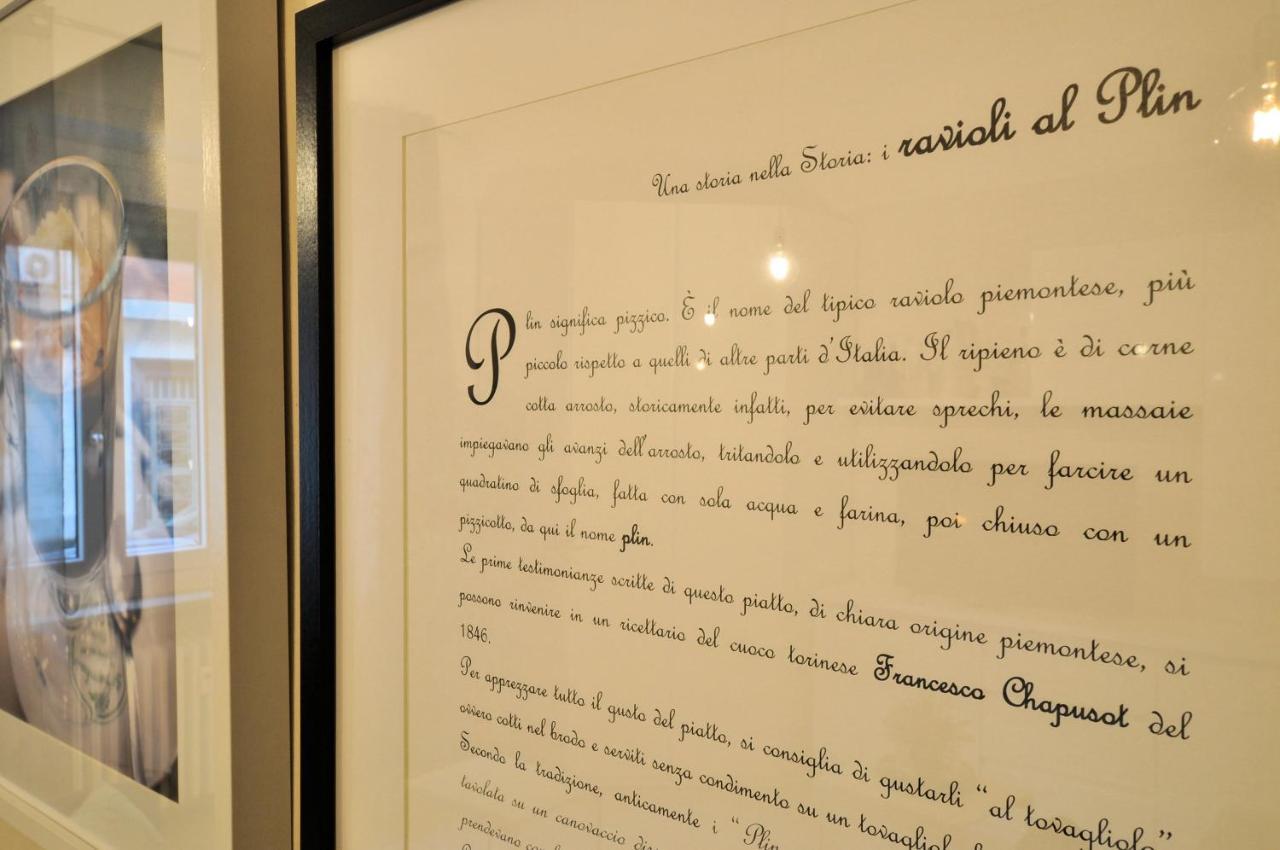 Una storia nella Storia: i ravioli al Plin
Plin significa pizzico. È il nome del tipico raviolo piemontese, più
piccolo rispetto a quelli di altre parti d'Italia. Il ripieno è di carne
cotta arrosto, storicamente infatti, per evitare sprechi, le massaie
impiegavano gli avanzi dell'arrosto, tritandolo e utilizzandolo per farcire un
quadratino di sfoglia, fatta con sola acqua e farina, poi chiuso con un
pizzicotto, da qui il nome plin.
Le prime testimonianze scritte di questo piatto, di chiara origine piemontese, si
possono rinvenire in un ricettario del cuoco torinese Francesco Chapusot del
1846.
Per apprezzare tutto il gusto del piatto, si consiglia di gustarli "al tovagliolo"
ovvero cotti nel brodo e serviti senza condimento su un
Secondo la tradizione, anticamente i "Plin
tavolata su un canovaccio
prendevano